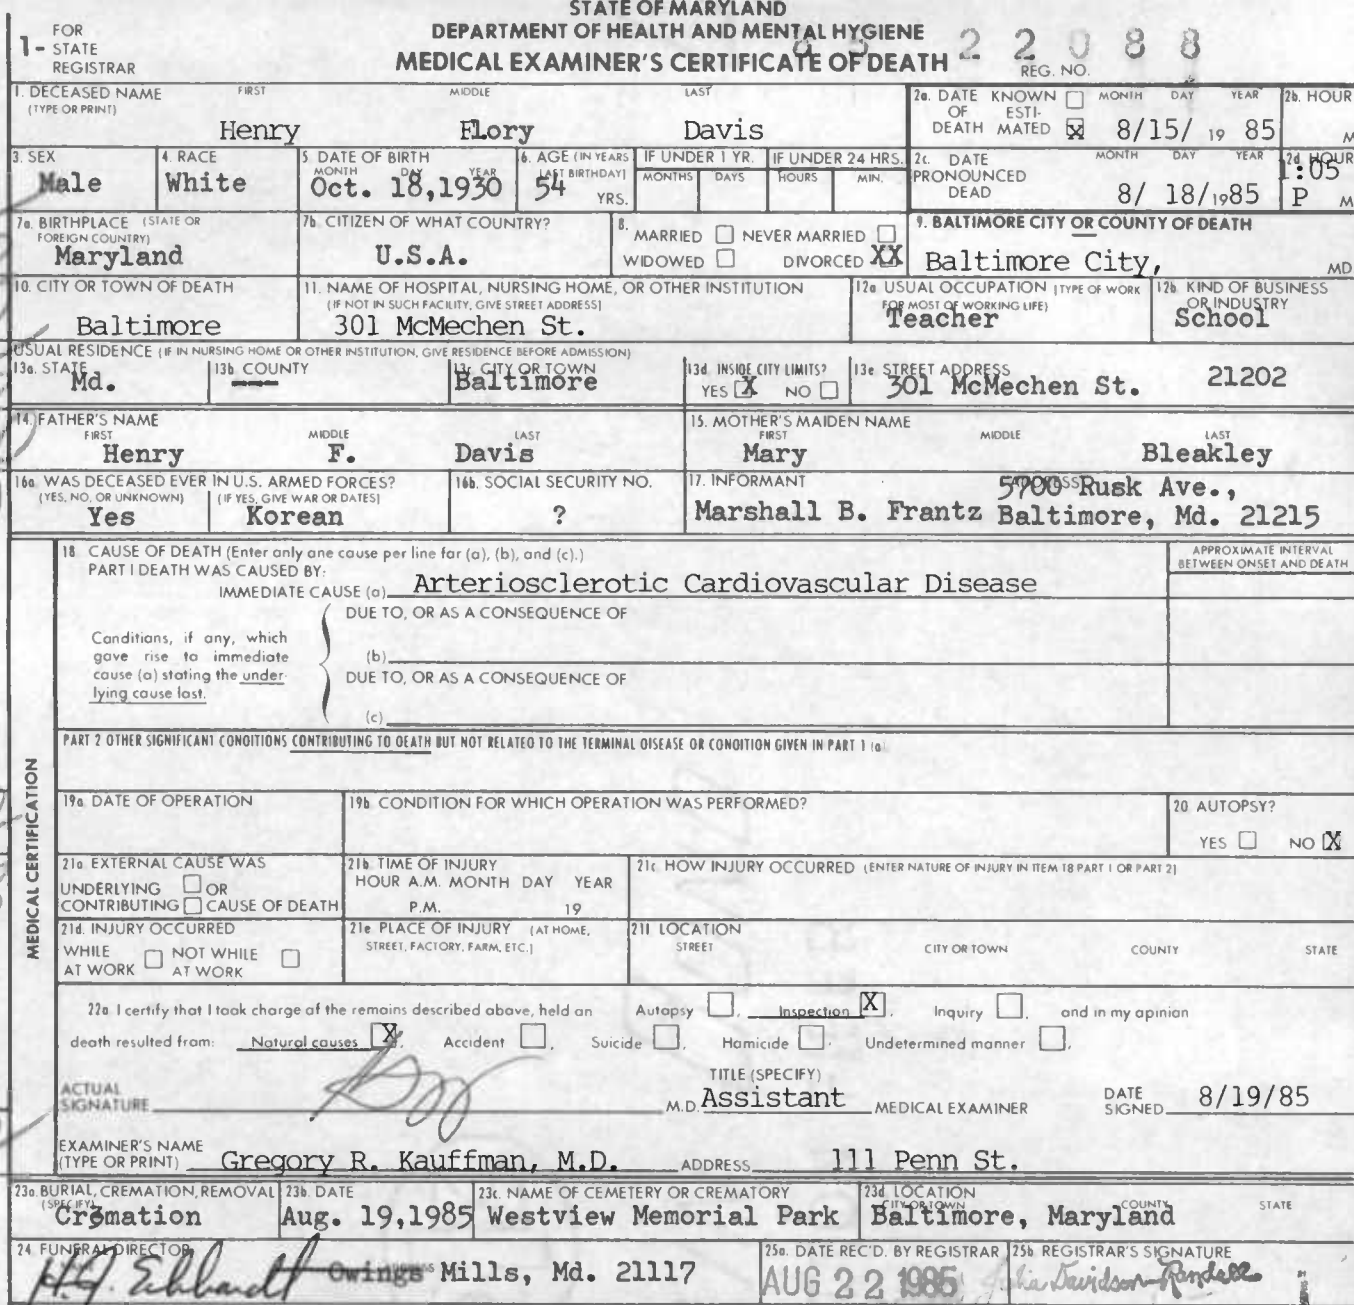 STATE OF MARYLAND
DEPARTMENT OF HEALTH AND MENTAL HYGIENE
MEDICAL EXAMINER'S CERTIFICATE OF DEATH
1- FOR STATE REGISTRAR
85 22088
REG. NO.
1. DECEASED NAME (TYPE OR PRINT) FIRST MIDDLE LAST
Henry Flory Davis
2a. DATE OF DEATH KNOWN ☐ ESTIMATED ☒ MONTH DAY YEAR 8/15/ 19 85
2b. HOUR M
3. SEX Male
4. RACE White
5. DATE OF BIRTH MONTH DAY YEAR Oct. 18,1930
6. AGE (IN YEARS LAST BIRTHDAY) 54 YRS.
IF UNDER 1 YR. MONTHS DAYS
IF UNDER 24 HRS. HOURS MIN.
2c. DATE PRONOUNCED DEAD MONTH DAY YEAR 8/ 18/1985
2d. HOUR 1:05 P M
7a. BIRTHPLACE (STATE OR FOREIGN COUNTRY) Maryland
7b. CITIZEN OF WHAT COUNTRY? U.S.A.
8. MARRIED ☐ NEVER MARRIED ☐
WIDOWED ☐ DIVORCED XX
9. BALTIMORE CITY OR COUNTY OF DEATH
Baltimore City, MD
10. CITY OR TOWN OF DEATH
Baltimore
11. NAME OF HOSPITAL, NURSING HOME, OR OTHER INSTITUTION
(IF NOT IN SUCH FACILITY, GIVE STREET ADDRESS)
301 McMechen St.
12a USUAL OCCUPATION (TYPE OF WORK FOR MOST OF WORKING LIFE)
Teacher
12b. KIND OF BUSINESS OR INDUSTRY
School
USUAL RESIDENCE (IF IN NURSING HOME OR OTHER INSTITUTION, GIVE RESIDENCE BEFORE ADMISSION)
13a. STATE Md.
13b. COUNTY ---
13c. CITY OR TOWN Baltimore
13d. INSIDE CITY LIMITS? YES ☒ NO ☐
13e STREET ADDRESS 301 McMechen St. 21202
14. FATHER'S NAME FIRST MIDDLE LAST
Henry F. Davis
15. MOTHER'S MAIDEN NAME FIRST MIDDLE LAST
Mary Bleakley
16a. WAS DECEASED EVER IN U.S. ARMED FORCES?
(YES, NO, OR UNKNOWN) (IF YES, GIVE WAR OR DATES)
Yes Korean
16b. SOCIAL SECURITY NO. ?
17. INFORMANT ADDRESS
Marshall B. Frantz 5700 Rusk Ave., Baltimore, Md. 21215
MEDICAL CERTIFICATION
18 CAUSE OF DEATH (Enter only one cause per line for (a), (b), and (c).)
PART I DEATH WAS CAUSED BY:
IMMEDIATE CAUSE (a) Arteriosclerotic Cardiovascular Disease
APPROXIMATE INTERVAL BETWEEN ONSET AND DEATH
Conditions, if any, which gave rise to immediate cause (a) stating the underlying cause last.
DUE TO, OR AS A CONSEQUENCE OF
(b)
DUE TO, OR AS A CONSEQUENCE OF
(c)
PART 2 OTHER SIGNIFICANT CONDITIONS CONTRIBUTING TO DEATH BUT NOT RELATED TO THE TERMINAL DISEASE OR CONDITION GIVEN IN PART 1 (a)
19a. DATE OF OPERATION
19b. CONDITION FOR WHICH OPERATION WAS PERFORMED?
20 AUTOPSY?
YES ☐ NO ☒
21a. EXTERNAL CAUSE WAS
UNDERLYING ☐ OR
CONTRIBUTING ☐ CAUSE OF DEATH
21b. TIME OF INJURY
HOUR A.M. MONTH DAY YEAR
P.M. 19
21c. HOW INJURY OCCURRED (ENTER NATURE OF INJURY IN ITEM 18 PART 1 OR PART 2)
21d. INJURY OCCURRED
WHILE AT WORK ☐ NOT WHILE AT WORK ☐
21e. PLACE OF INJURY (AT HOME, STREET, FACTORY, FARM, ETC.)
21f. LOCATION
STREET CITY OR TOWN COUNTY STATE
22a. I certify that I took charge of the remains described above, held an Autopsy ☐, Inspection ☒, Inquiry ☐, and in my opinion
death resulted from: Natural causes ☒, Accident ☐, Suicide ☐, Homicide ☐. Undetermined manner ☐,
ACTUAL SIGNATURE M.D.
TITLE (SPECIFY) Assistant MEDICAL EXAMINER
DATE SIGNED 8/19/85
EXAMINER'S NAME (TYPE OR PRINT) Gregory R. Kauffman, M.D. ADDRESS 111 Penn St.
23a. BURIAL, CREMATION, REMOVAL (SPECIFY) Cremation
23b. DATE Aug. 19,1985
23c. NAME OF CEMETERY OR CREMATORY Westview Memorial Park
23d. LOCATION CITY OR TOWN COUNTY STATE
Baltimore, Maryland
24 FUNERAL DIRECTOR
H.J. Eckhardt Owings Mills, Md. 21117
25a. DATE REC'D. BY REGISTRAR AUG 22 1985
25b. REGISTRAR'S SIGNATURE Julia Davidson-Randall